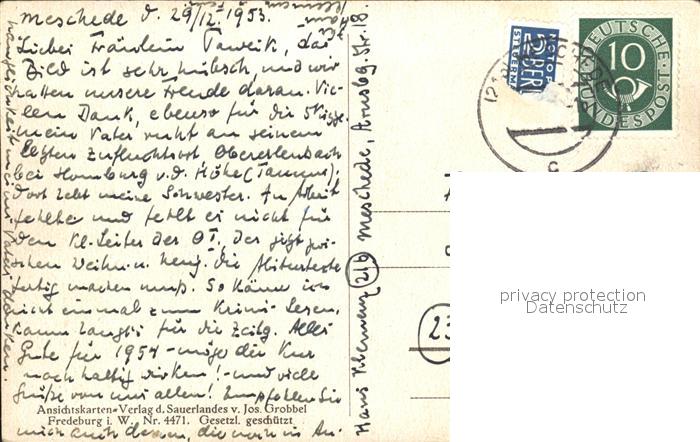 Meschede d. 29/12. 1953.
Liebes Fräulein Taweik, das
Bild ist sehr hübsch, und wir
hatten unsere Freude daran. Vie-
len Dank, ebenso für die Skizze.
mein Vater ruht an seinem
letzten Zufluchtsort, Obererlenbach
bei Homburg v. d. Höhe (Taunus);
dort lebt meine Schwester. An Arbeit
fehlte und fehlt es nicht für
den Kl-Leiter der OI, der jetzt zwi-
schen Weihn. u. Neuj. die Abiturtexte
fertig machen muß. So käme ich
nicht einmal zum Krimi-Lesen,
kaum langt's für die Zeitg. Alles
Gute für 1954 - möge die Kur
nachhaltig wirken! - und viele
Grüße von uns allen! Empfehlen Sie
mich auch denen, die
Ansichtskarten-Verlag d. Sauerlandes v. Jos. Grobbel
Fredeburg i. W., Nr. 4471. Gesetzl. geschützt
Hans (21b) Meschede, Arnsbg. Str. 18.
NOTOPFER
2 BERLIN
STEUERMARKE
DEUTSCHE
10
BUNDESPOST
MESCHEDE
c
(23
privacy protection
Datenschutz